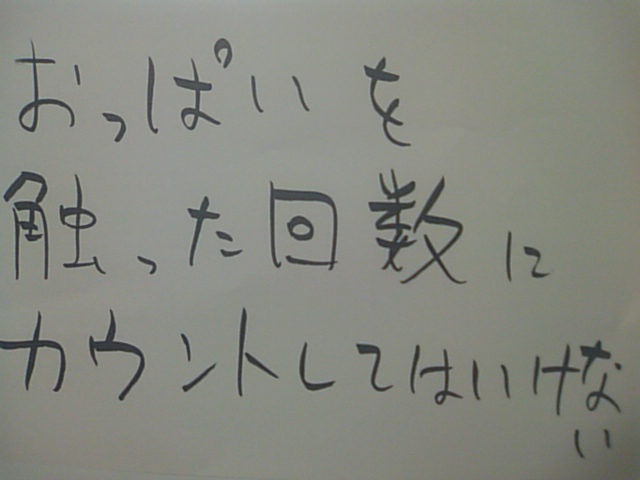 おっぱいを
触った回数に
カウントしてはいけな
い